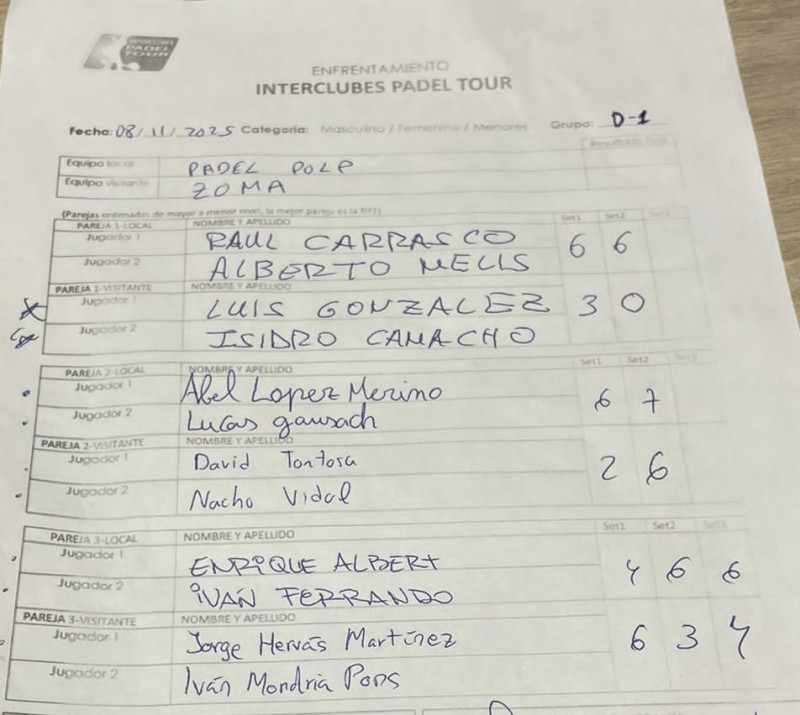 PADEL TOUR
ENFRENTAMIENTO
INTERCLUBES PADEL TOUR
Fecha: 08/11/2025 Categoría: Masculino / Femenino / Menores Grupo: D-1
Equipo local PADEL POLP
Equipo visitante ZOMA
(Parejas ordenadas de mayor a menor nivel, la mejor pareja es la Nº1)
PAREJA 1-LOCAL NOMBRE Y APELLIDO Set1 Set2
Jugador 1 RAUL CARRASCO 6 6
Jugador 2 ALBERTO MELIS
PAREJA 1-VISITANTE NOMBRE Y APELLIDO
Jugador 1 LUIS GONZALEZ 3 0
Jugador 2 ISIDRO CAMACHO
PAREJA 2-LOCAL NOMBRE Y APELLIDO Set1 Set2 Set3
Jugador 1 Abel Lopez Merino 6 7
Jugador 2 Lucas gausach
PAREJA 2-VISITANTE NOMBRE Y APELLIDO
Jugador 1 David Tortosa 2 6
Jugador 2 Nacho Vidal
PAREJA 3-LOCAL NOMBRE Y APELLIDO Set1 Set2 Set3
Jugador 1 ENRIQUE ALBERT 4 6 6
Jugador 2 IVÁN FERRANDO
PAREJA 3-VISITANTE NOMBRE Y APELLIDO
Jugador 1 Jorge Hervás Martínez 6 3 4
Jugador 2 Iván Mondria Pons